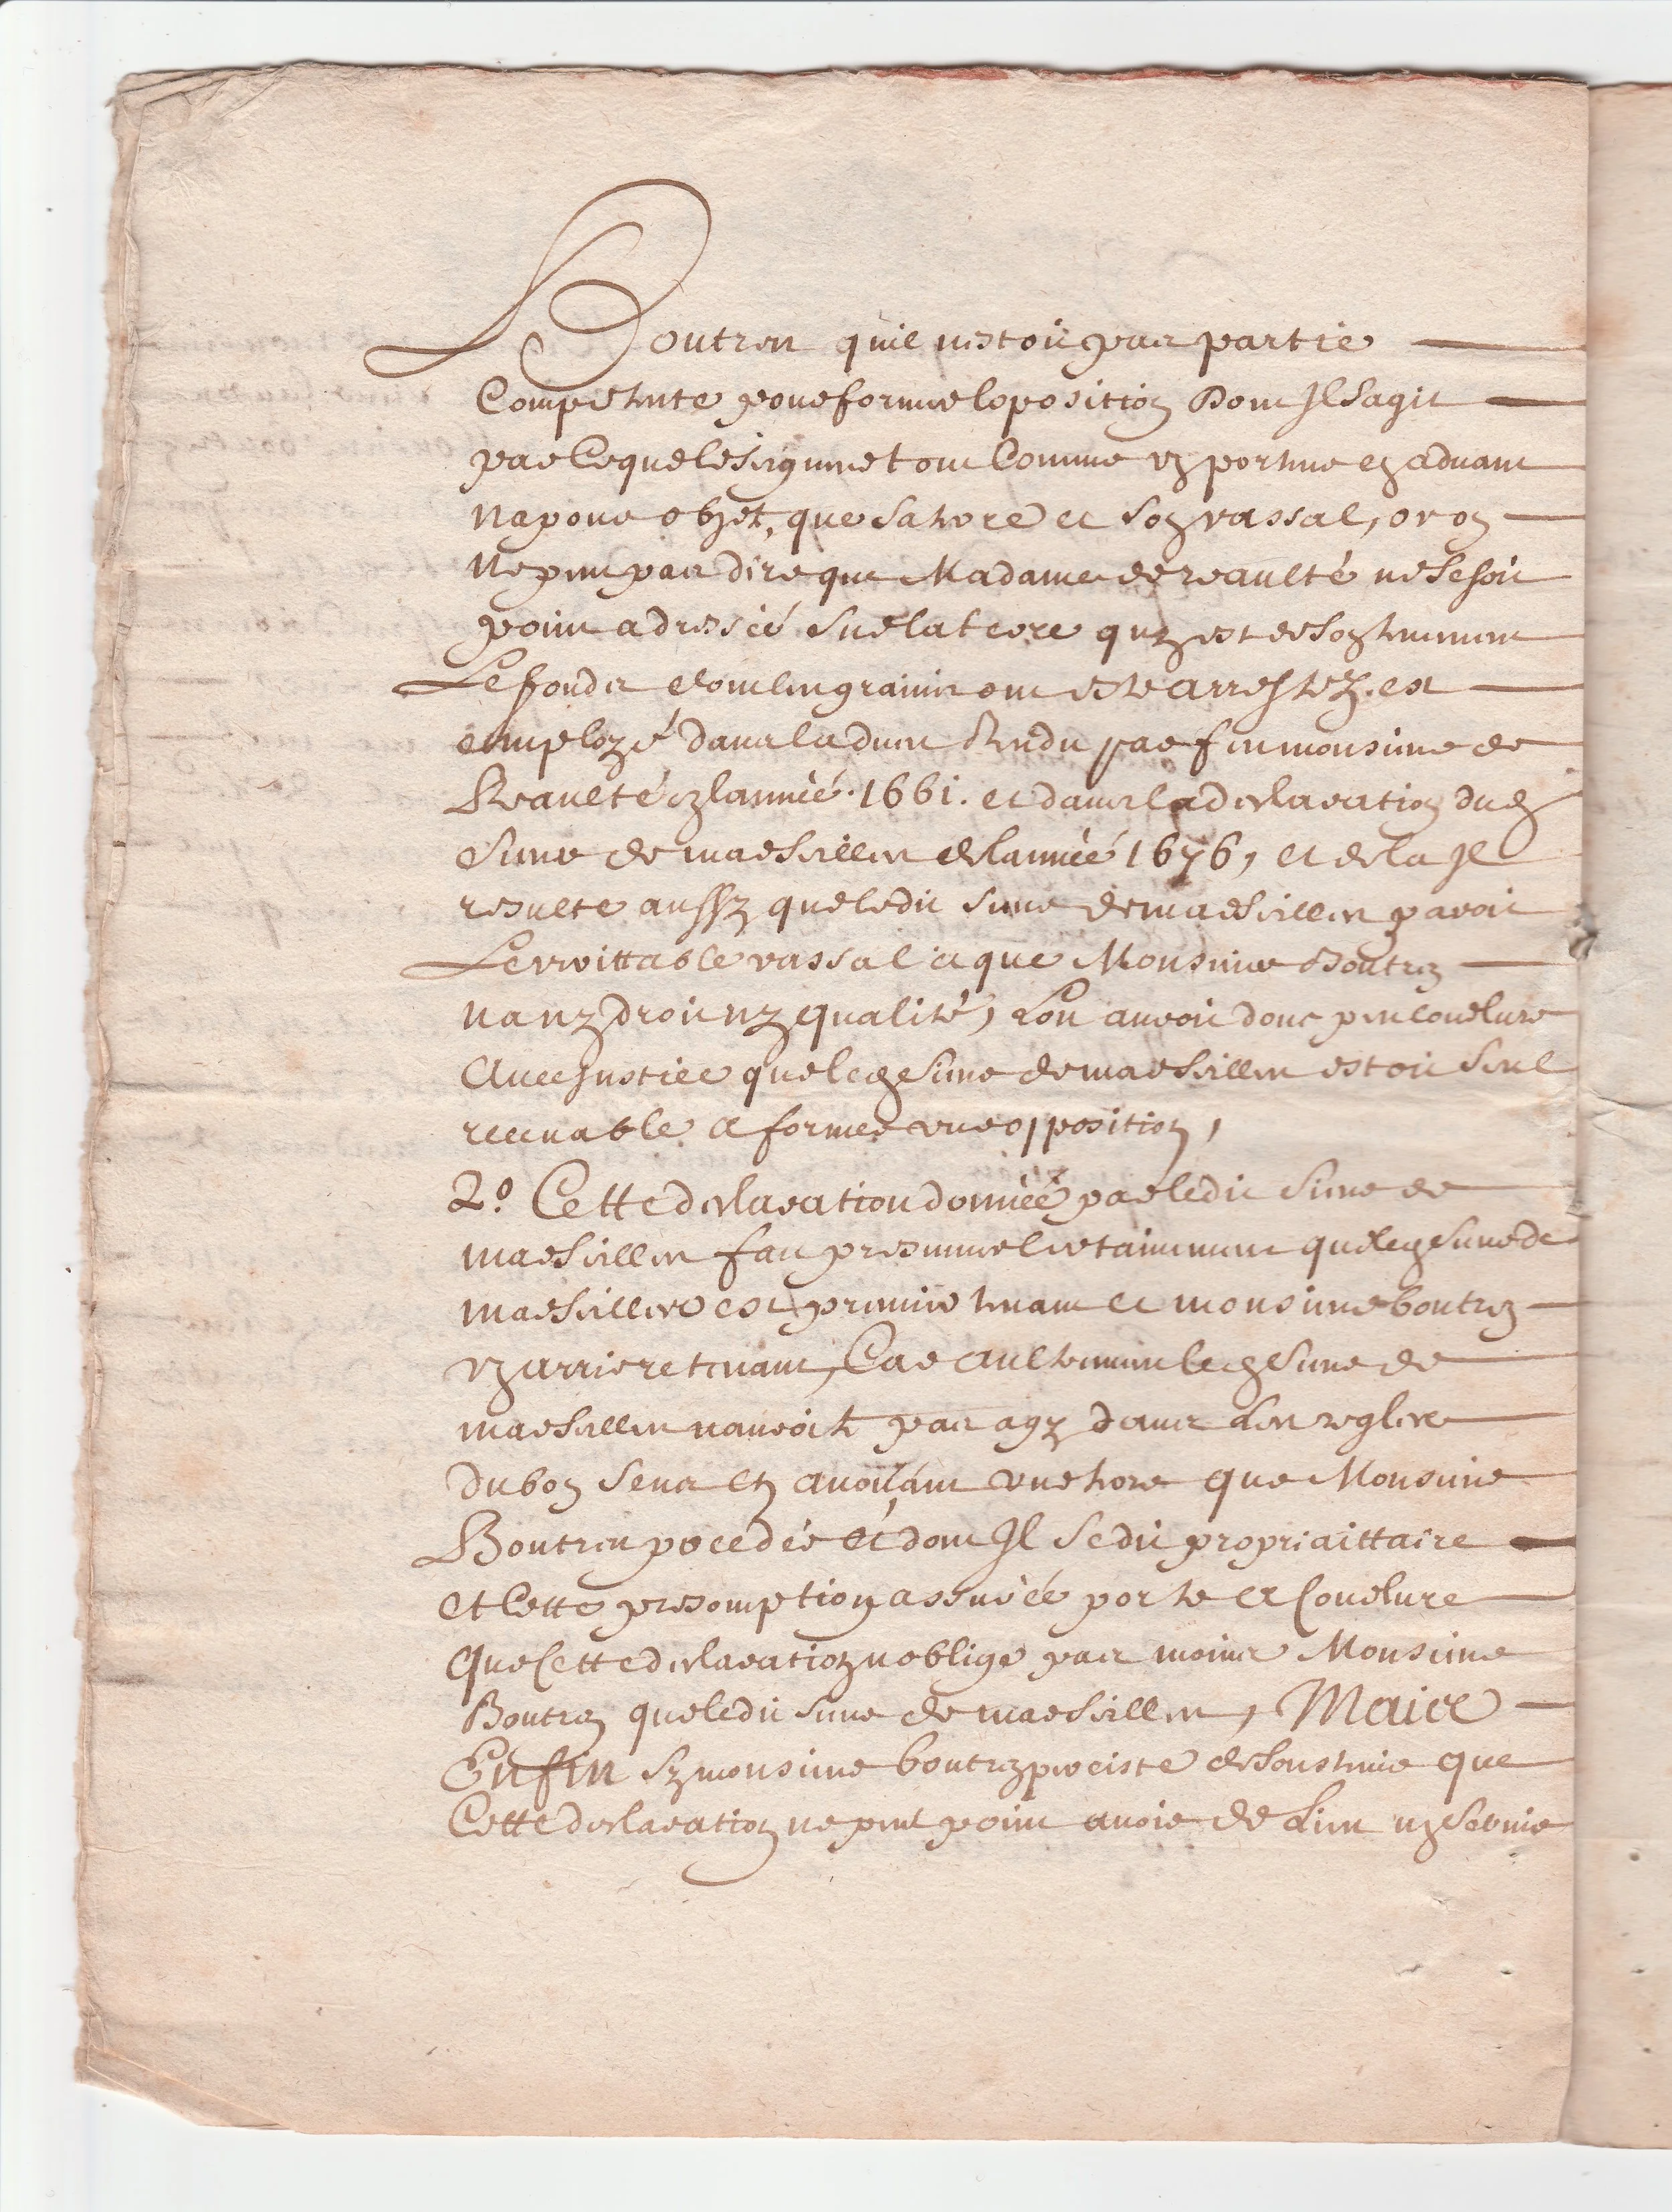 Boutren quil nestoit pas partie
Competente pour former loposition Dont Jl Sagit
par Ce que le seigneur tout Comme porteur advant
Na pour objet, que sa terre et son vassal, or on
Ne peut pas dire que Madame de reaulté ne se soit
point adressée sur la terre quy est de son tenement
Le fonds dont les grains ont esté arrestez. est
employé dans ladveu Rendu par feu monsieur de
Reaulté en lannéé. 1661. et dans la declaration dud
Sieur de marseilles de lannéé 1676, et de la Jl
resulte aussy que ledit sieur de marseilles paroit
Le veritable vassal et que Monsieur Boutren
na ny droit ny qualité, Lon auroit donc peu conclure
Avec Justice que led Sieur de marseilles estoit seul
recevable a former une opposition,
2.o Cette declaration donnéé par ledit sieur de
marseilles fait presumer certainement que led sieur de
marseilles est premier tenant et monsieur boutren
arriere tenant, Car aultrement led Sieur de
marseilles nauroit pas agy dans les regles
du bon sens en avoüant une terre que Monsieur
Boutren possede et dont Jl se dit propriaittaire
et Cette presomption assuréé porte a Conclure
que Cette declaration noblige pas moins Monsieur
Boutren que ledit sieur de marseilles, Mais
Enfin sy monsieur boutren perciste de soustenir que
Cette declaration ne peut point avoir de Lieu ny servir